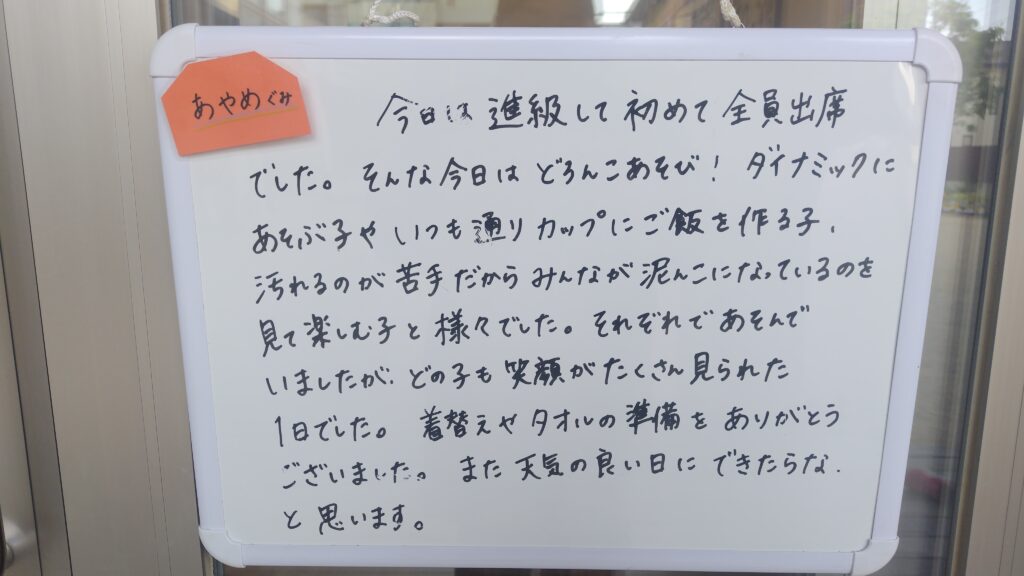 あやめぐみ
今日は進級して初めて全員出席
でした。そんな今日はどろんこあそび！ダイナミックに
あそぶ子やいつも通りカップにご飯を作る子、
汚れるのが苦手だからみんなが泥んこになっているのを
見て楽しむ子と様々でした。それぞれであそんで
いましたが、どの子も笑顔がたくさん見られた
1日でした。着替えやタオルの準備をありがとう
ございました。また天気の良い日にできたらな、
と思います。